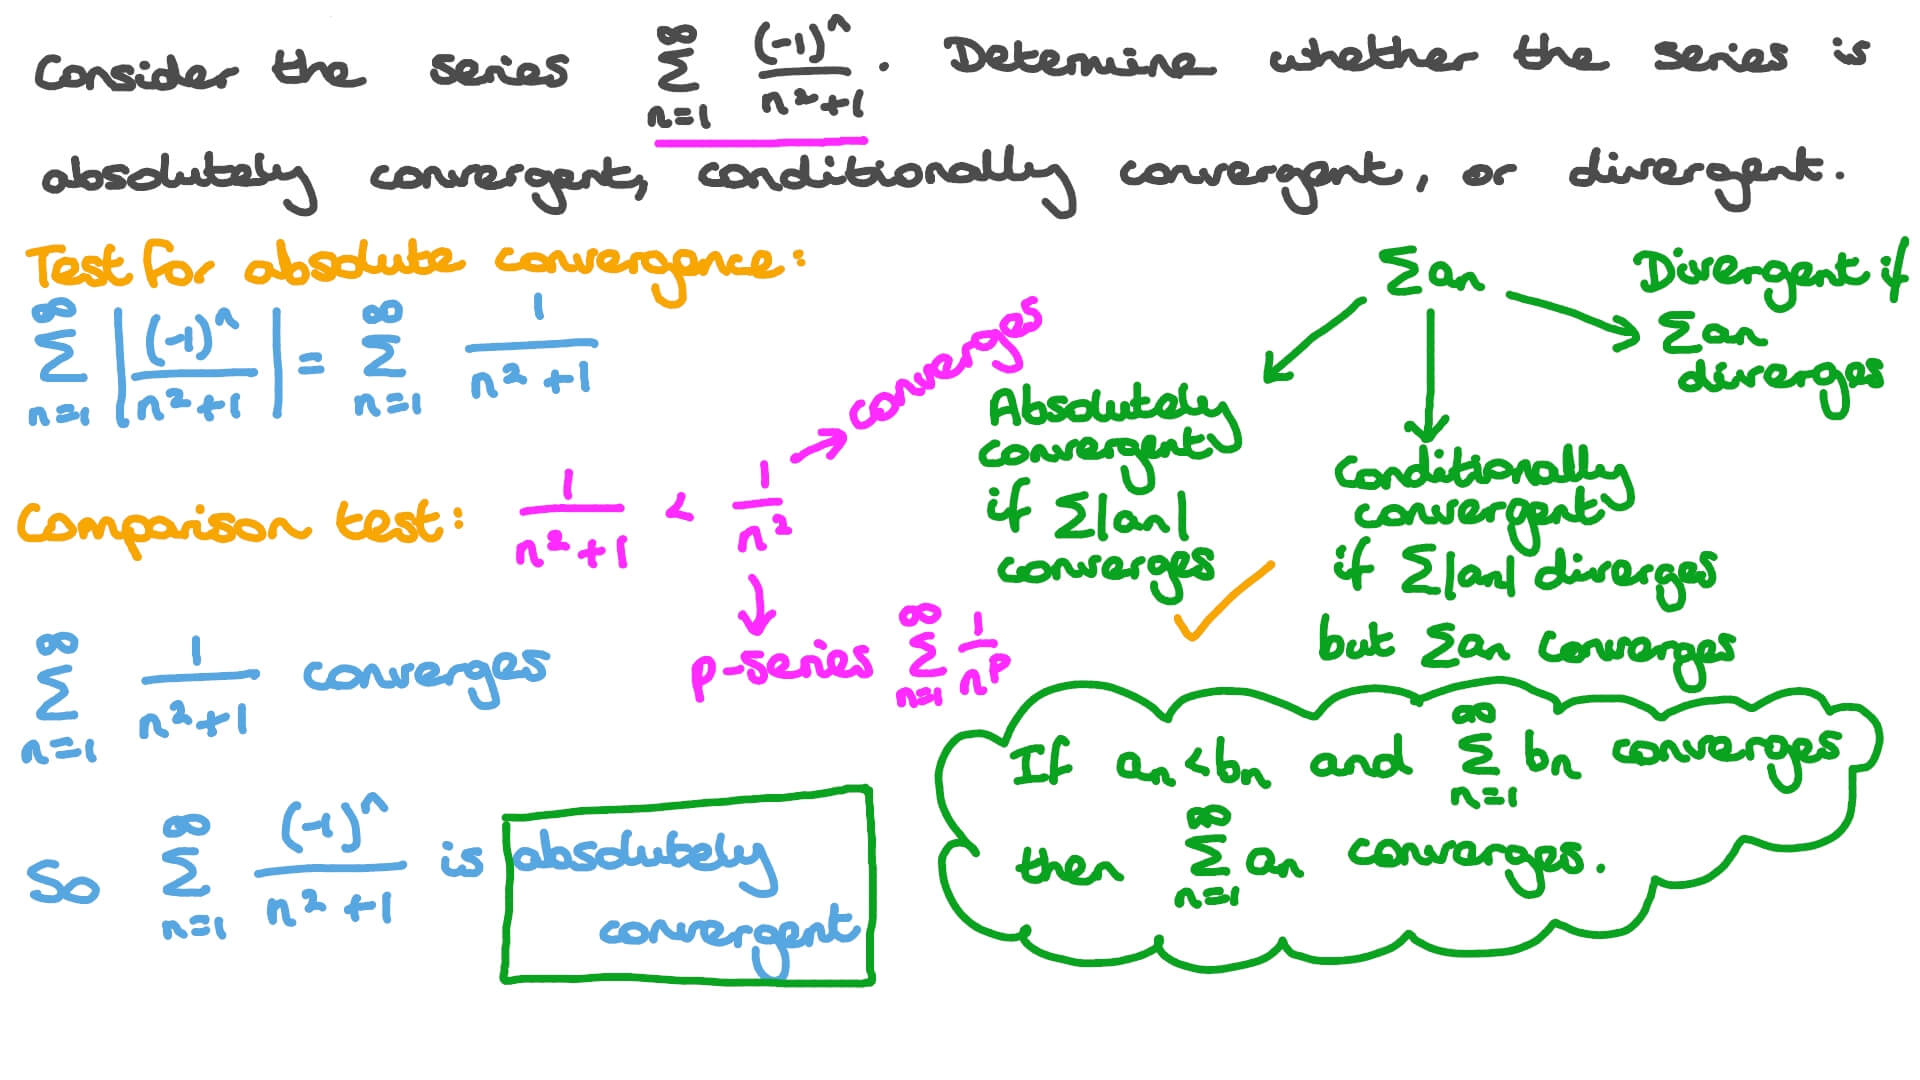 Consider the series $\sum_{n=1}^{\infty} \frac{(-1)^n}{n^2+1}$. Determine whether the series is
absolutely convergent, conditionally convergent, or divergent.
Test for absolute convergence:
$\sum_{n=1}^{\infty} \left| \frac{(-1)^n}{n^2+1} \right| = \sum_{n=1}^{\infty} \frac{1}{n^2+1}$
Comparison test: $\frac{1}{n^2+1} < \frac{1}{n^2}$ → converges
↓
p-series $\sum_{n=1}^{\infty} \frac{1}{n^p}$
$\sum_{n=1}^{\infty} \frac{1}{n^2+1}$ converges
So $\sum_{n=1}^{\infty} \frac{(-1)^n}{n^2+1}$ is absolutely
convergent
$\sum a_n$
Absolutely
convergent
if $\sum |a_n|$
converges
✓
Conditionally
convergent
if $\sum |a_n|$ diverges
but $\sum a_n$ converges
Divergent if
$\sum a_n$
diverges
If $a_n < b_n$ and $\sum_{n=1}^{\infty} b_n$ converges
then $\sum_{n=1}^{\infty} a_n$ converges.